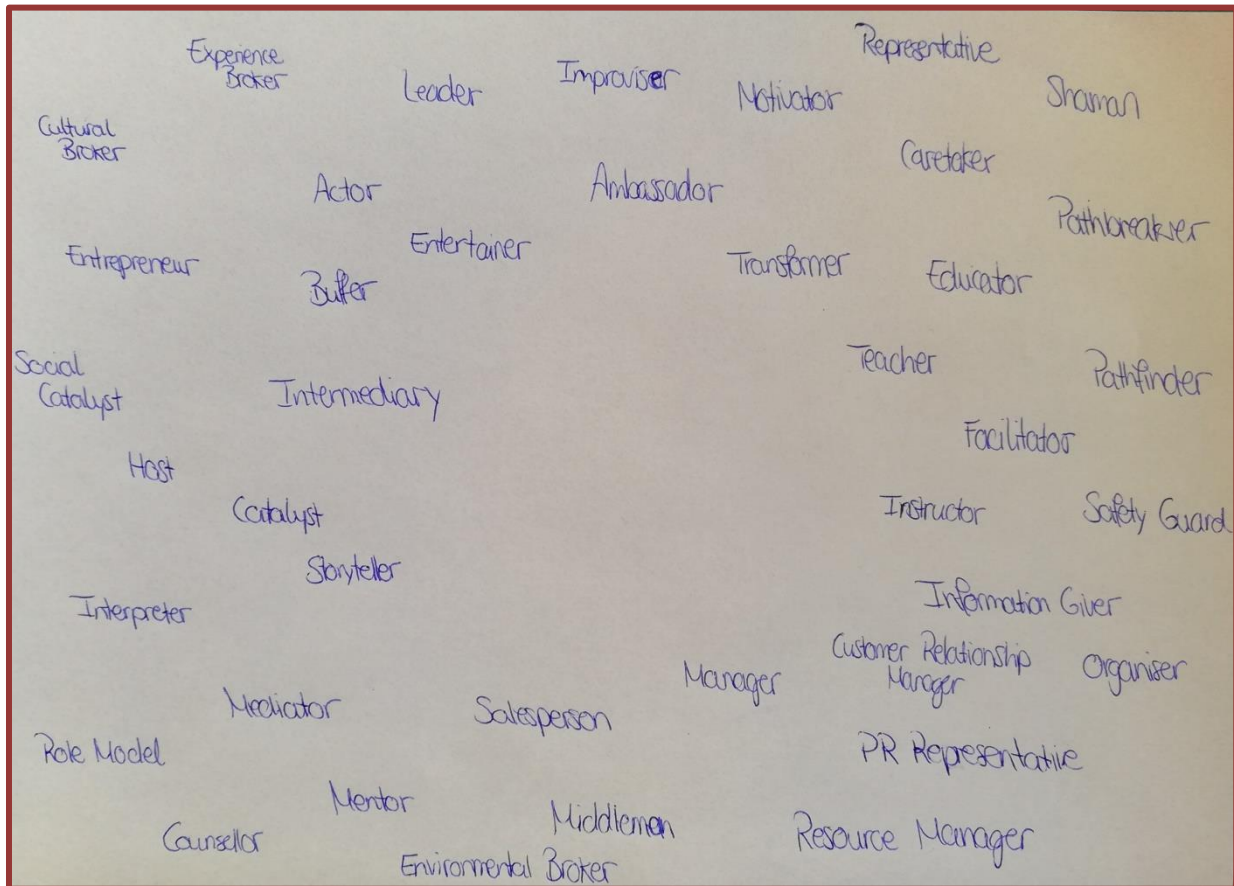 Experience
Broker
Leader
Improviser
Motivator
Representative
Shaman
Cultural
Broker
Actor
Ambassador
Caretaker
Pathbreakser
Entrepreneur
Buffer
Entertainer
Transformer
Educator
Social
Catalyst
Intermediary
Teacher
Pathfinder
Facilitator
Host
Catalyst
Instructor
Safety Guard
Storyteller
Interpreter
Information Giver
Mediator
Salesperson
Manager
Customer Relationship
Manager
Organiser
Role Model
PR Representative
Mentor
Middleman
Counsellor
Resource Manager
Environmental Broker